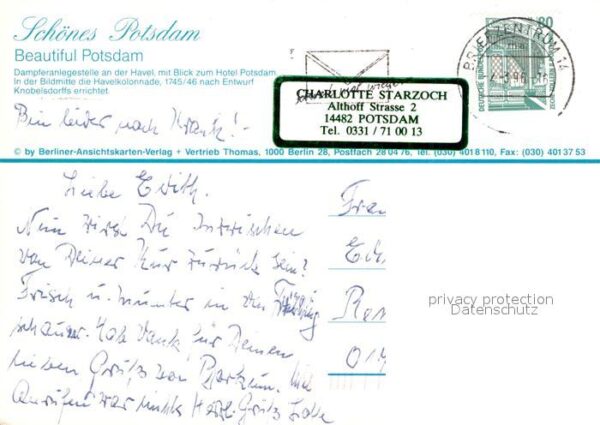 Schönes Potsdam
Beautiful Potsdam
Dampferanlegestelle an der Havel, mit Blick zum Hotel Potsdam.
In der Bildmitte die Havelkolonnade, 1745/46 nach Entwurf
Knobelsdorffs errichtet.
80
DEUTSCHE BUNDESPOST
BRIEFZENTRUM 14
CHARLOTTE STARZOCH
Althoff Strasse 2
14482 POTSDAM
Tel. 0331 / 71 00 13
Bin leider noch krank! -
© by Berliner-Ansichtskarten-Verlag + Vertrieb Thomas, 1000 Berlin 28, Postfach 28 04 76, Tel. (030) 401 81 10, Fax: (030) 401 37 53
Liebe Edith.
Nun wirst Du inzwischen
von Deiner Kur zurück sein?
Frisch u. munter in den
schauen. Hab Dank für Deinen
lieben Gruß von
Anrufen war nichts Herzl. Grüße Lotte
Frau
Ed
Ren
privacy protection
Datenschutz